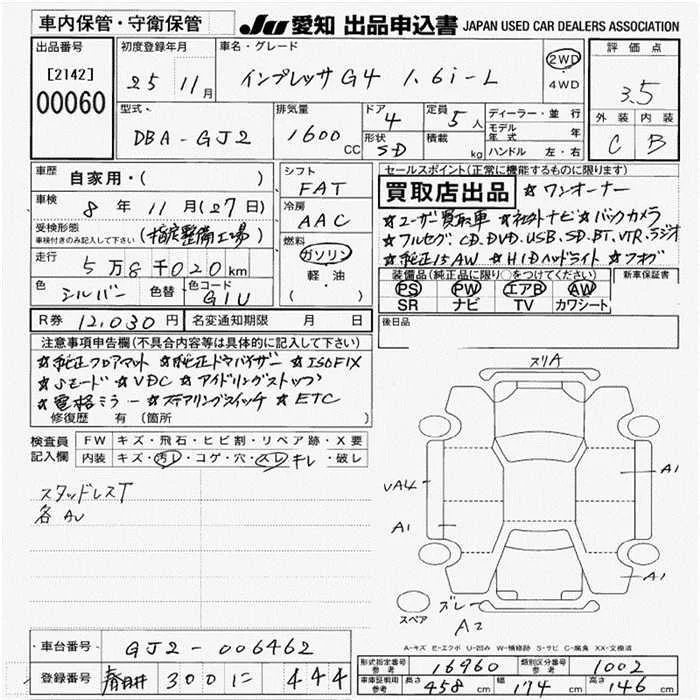 車内保管・守衛保管
JU 愛知 出品申込書 JAPAN USED CAR DEALERS ASSOCIATION
出品番号
[2142]
00060
初度登録年月
25 11月
車名・グレード
インプレッサG4 1.6i-L
2WD
・
4WD
評価点
3.5
外装 内装
C B
型式
DBA-GJ2
排気量
1600 CC
ドア
4
形状
SD
定員
5人
積載
kg
ディーラー・並行
モデル年式 年
ハンドル 左・右
車歴
自家用・( )
車検
8年 11月(27日)
受検形態
車検付きのみ記入して下さい
(指定整備工場)
走行
5万8千020km
色 シルバー 色替 色コード G1U
シフト
FAT
冷房
AAC
燃料
ガソリン
軽・油
( )
セールスポイント(正常に機能するものに限ります)
買取店出品 ☆ワンオーナー
☆ユーザー買取車 ☆社外ナビ☆バックカメラ
☆フルセグ、CD、DVD、USB、SD、BT、VTR、ラジオ
☆純正15AW ☆HIDヘッドライト ☆フォグ
装備品(純正品に限り○をつけてください) 新車保証書
PS PW エアB AW
SR ナビ TV カワシート
R券 12,030円 名変通知期限 月 日
後日品
注意事項申告欄(不具合内容等は具体的に記入して下さい)
☆純正フロアマット ☆純正ドアバイザー ☆ISOFIX
☆Sモード ☆VDC ☆アイドリングストップ
☆電格ミラー ☆ステアリングスイッチ ☆ETC
修復歴 有(箇所
検査員
記入欄
FW キズ・飛石・ヒビ割・リペア跡・X要
内装 キズ・汚レ・コゲ・穴・スレ キレ・破レ
スタッドレスT
各AU
スリA
A1
A1
A1
ズレ
A2
スペア
A-キズ E-エクボ U-凹み W-補修跡 S-サビ C-腐食 XX-交換済
車台番号 GJ2-006462
登録番号 春日井 300 に 444
形式指定番号 参考 16960 類別区分番号 参考 1002
車庫証明用 参考 長さ 458 cm 幅 174 cm 高さ 146 cm